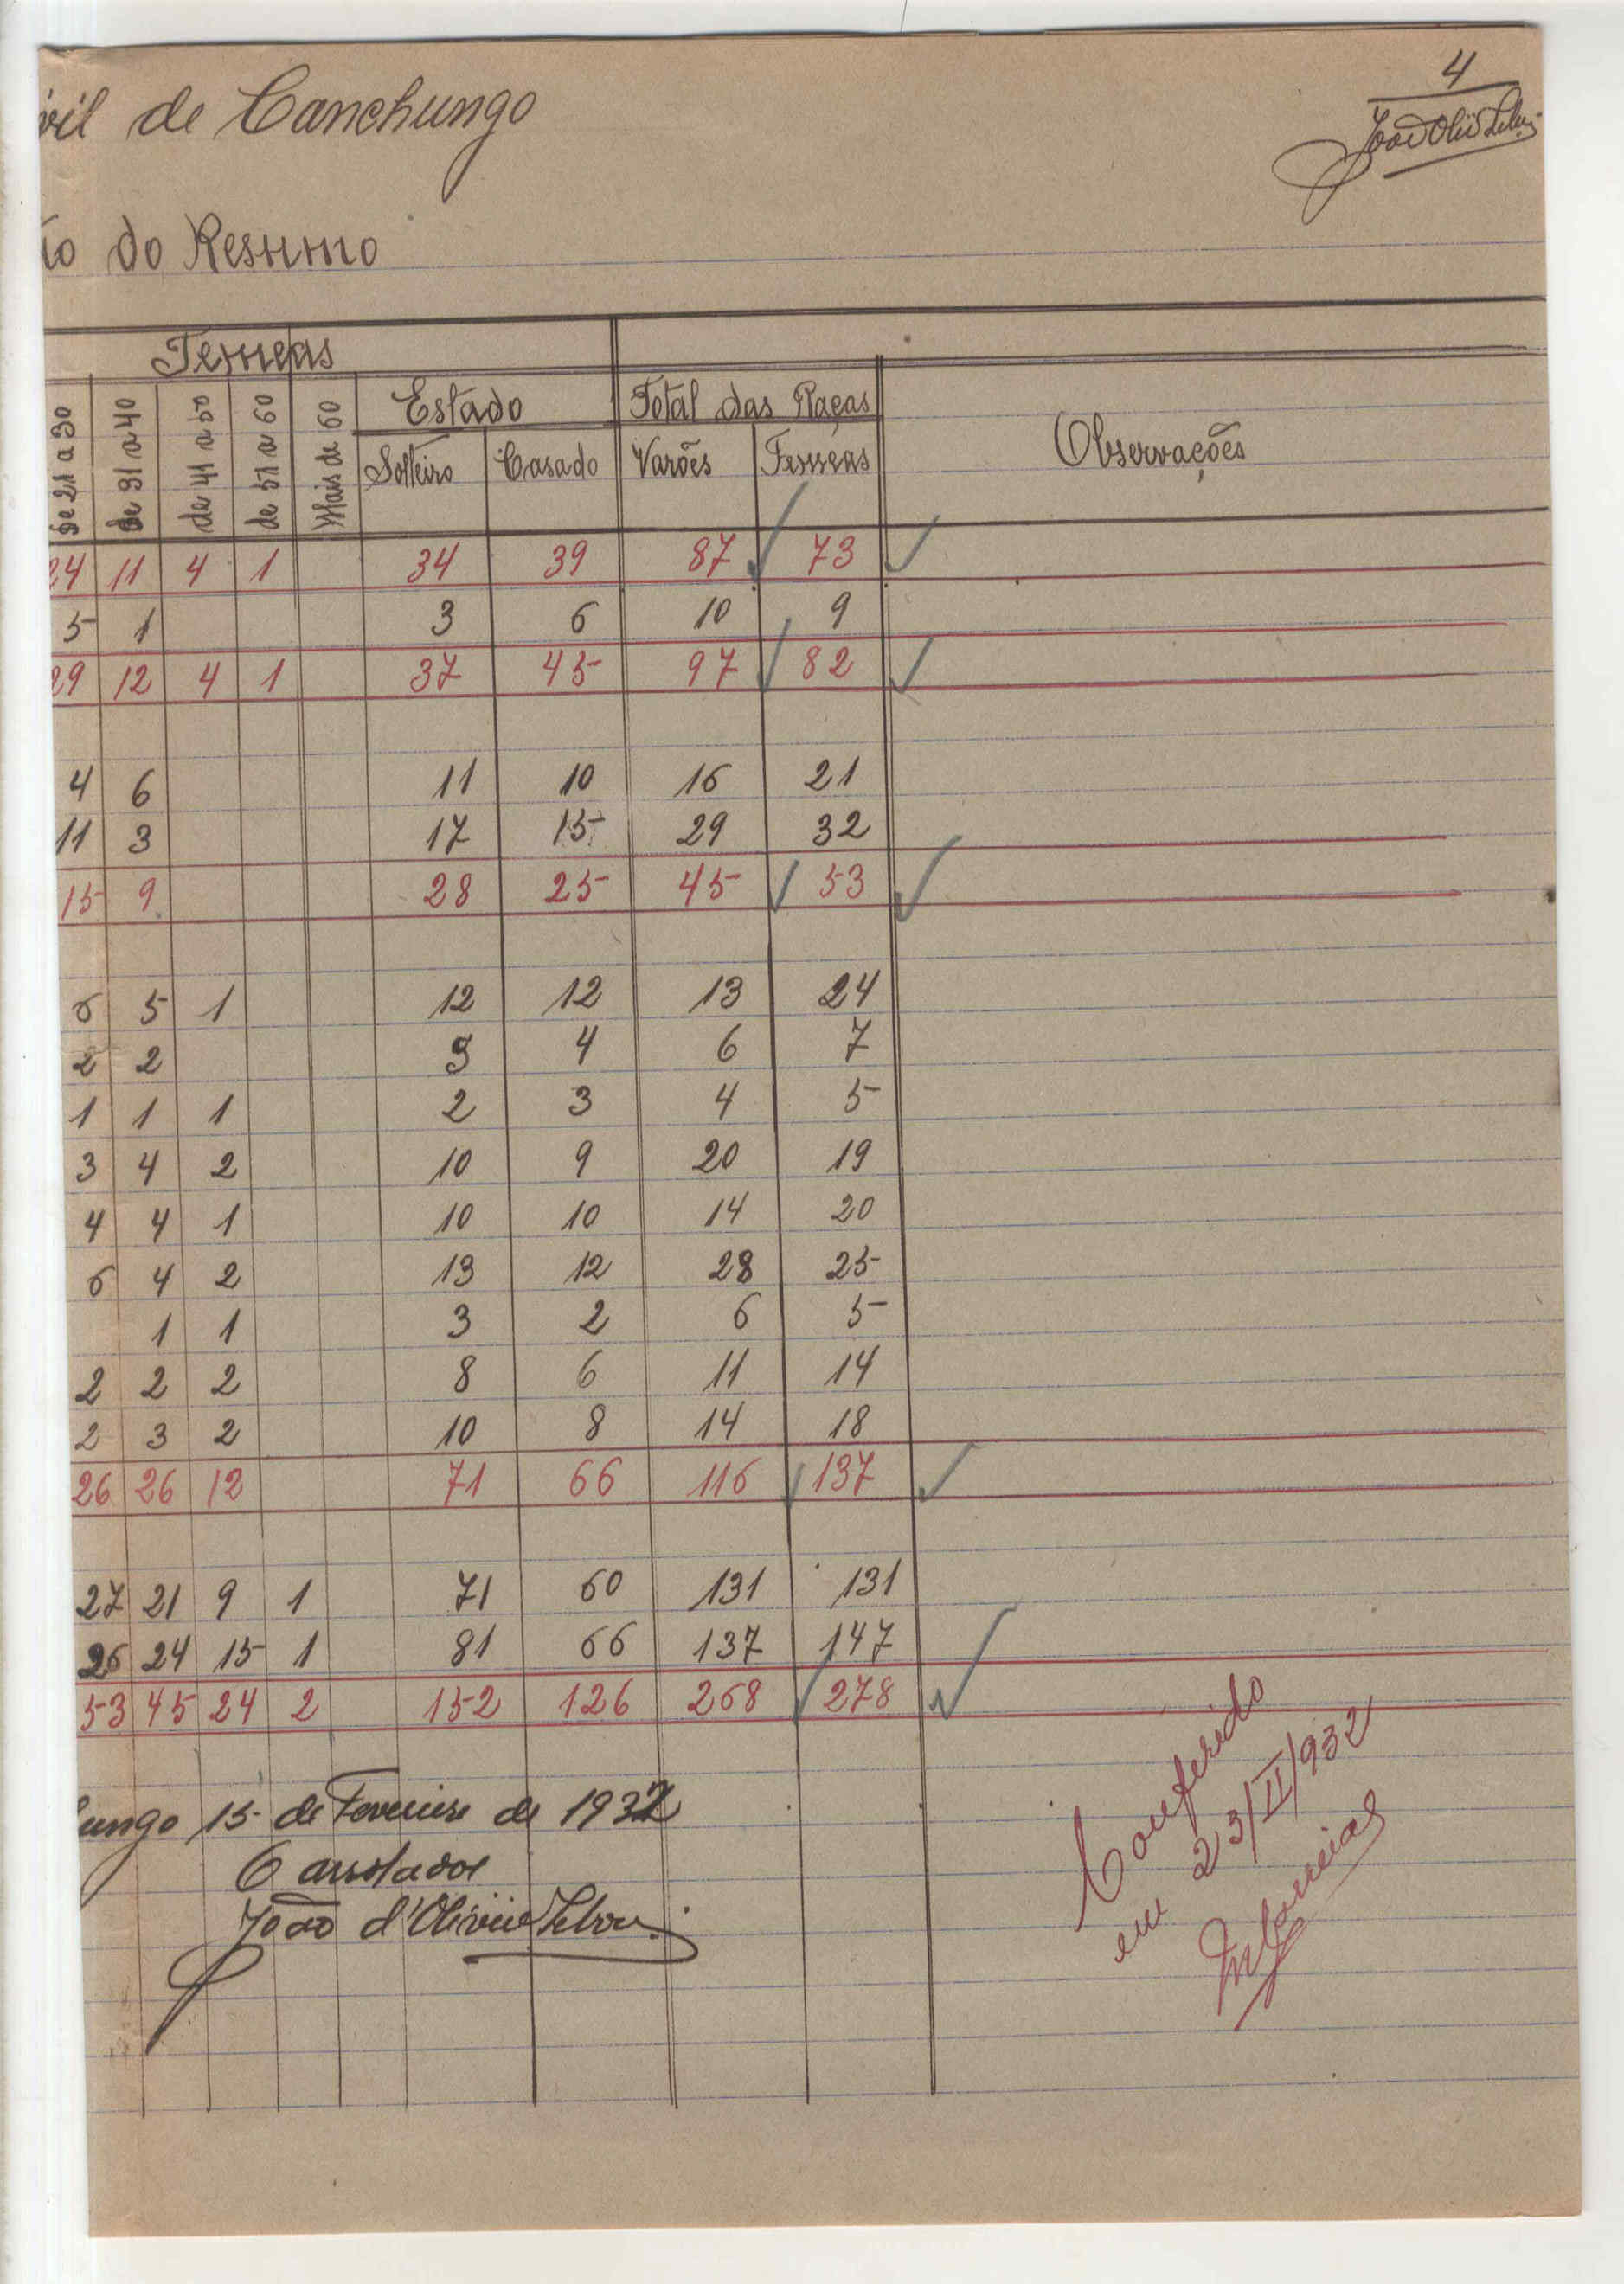 4
vil de Canchungo
ão do Resumo
Femeas
Estado
Total das Raças
Observações
de 21 a 30
de 31 a 40
de 41 a 50
de 51 a 60
Mais de 60
Solteiro
Casado
Varões
Femeas
24 11 4 1 34 39 87 73
5 1 3 6 10 9
29 12 4 1 37 45 97 82
4 6 11 10 16 21
11 3 17 15 29 32
15 9 28 25 45 53
6 5 1 12 12 13 24
2 2 3 4 6 7
1 1 1 2 3 4 5
3 4 2 10 9 20 19
4 4 1 10 10 14 20
6 4 2 13 12 28 25
1 1 3 2 6 5
2 2 2 8 6 11 14
2 3 2 10 8 14 18
26 26 12 71 66 116 137
27 21 9 1 71 60 131 131
26 24 15 1 81 66 137 147
53 45 24 2 152 126 268 278
ungo 15 de Fevereiro de 1932
O anotador
João d'Oliveira
Conferido
em 23/II/932